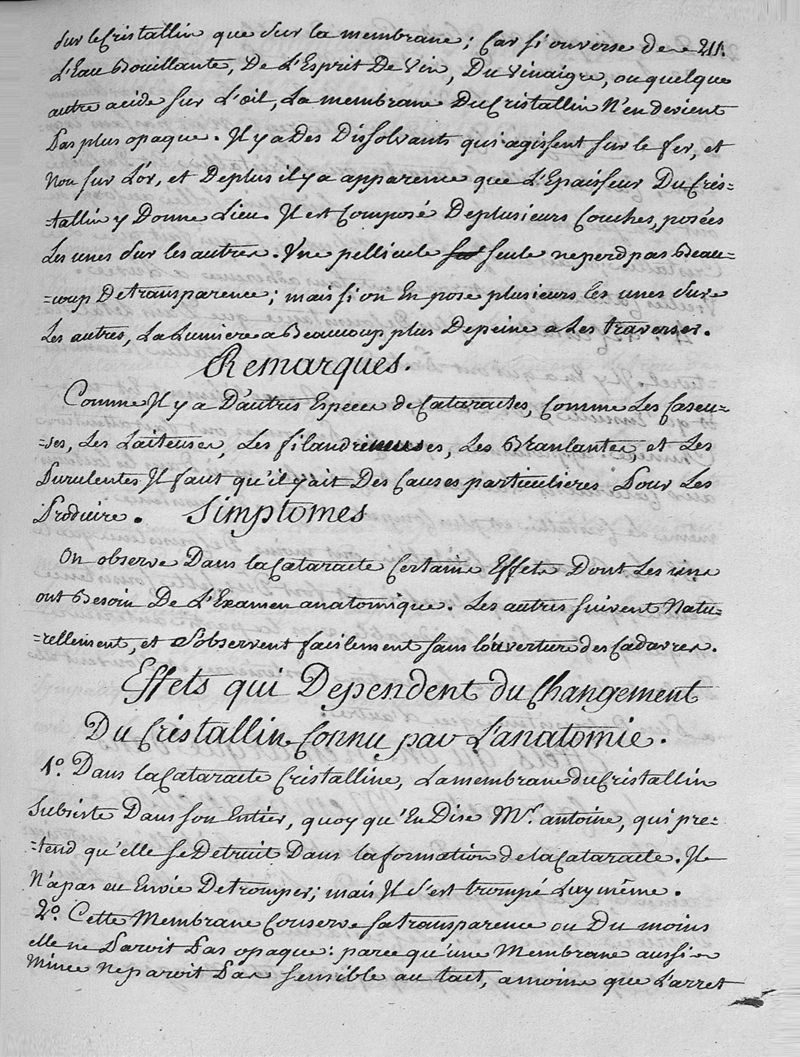 sur le Cristallin que sur la membrane; Car si on verse de 211.
L'Eau Bouillante, De L'Esprit De Vin, Du Vinaigre, ou quelque
autre acide sur L'oeil, La membrane Du Cristallin N'en devient
Pas plus opaque. Il y a Des Dissolvants qui agissent sur le fer, et
Non sur L'or, et De plus il y a apparence que L'Epaisseur Du Cris=
=tallin y Donne Lieu. Il est Composé De plusieurs Couches, posées
Les unes sur les autres. Une pellicule seule ne perd pas Beau=
=coup De transparence; mais si on En pose plusieurs les unes sur
Les autres, La Lumiere a Beaucoup plus De peine a Les traverser.
Remarques.
Comme Il y a D'autres Especes de Cataractes, Comme Les Caseu=
=ses, Les Laiteuses, Les filandrieuses, Les Branlantes, et Les
Purulentes Il faut qu'il y ait Des Causes particulieres Pour Les
Produire. Simptomes
On observe Dans la Cataracte Certains Effets Dont Les uns
ont Besoin De L'Examen anatomique. Les autres suivent Natu=
=rellement, et s'observent facilement sans l'ouverture des Cadavres.
Effets qui Dependent du Changement
Du Cristallin Connu par L'anatomie.
1.° Dans la Cataracte Cristalline, La membrane du Cristallin
subsiste Dans son Entier, quoy qu'En Dise Mr. antoine, qui pre=
=tend qu'elle se Detruit Dans la formation de la Cataracte. Il
N'a pas eu Envie De tromper; mais Il s'est trompé Luy même.
2.° Cette Membrane Conserve sa transparence ou Du moins
elle ne Paroit Pas opaque: parce qu'une Membrane aussi
Mince Ne paroit Pas sensible au tact, a moins que L'arret